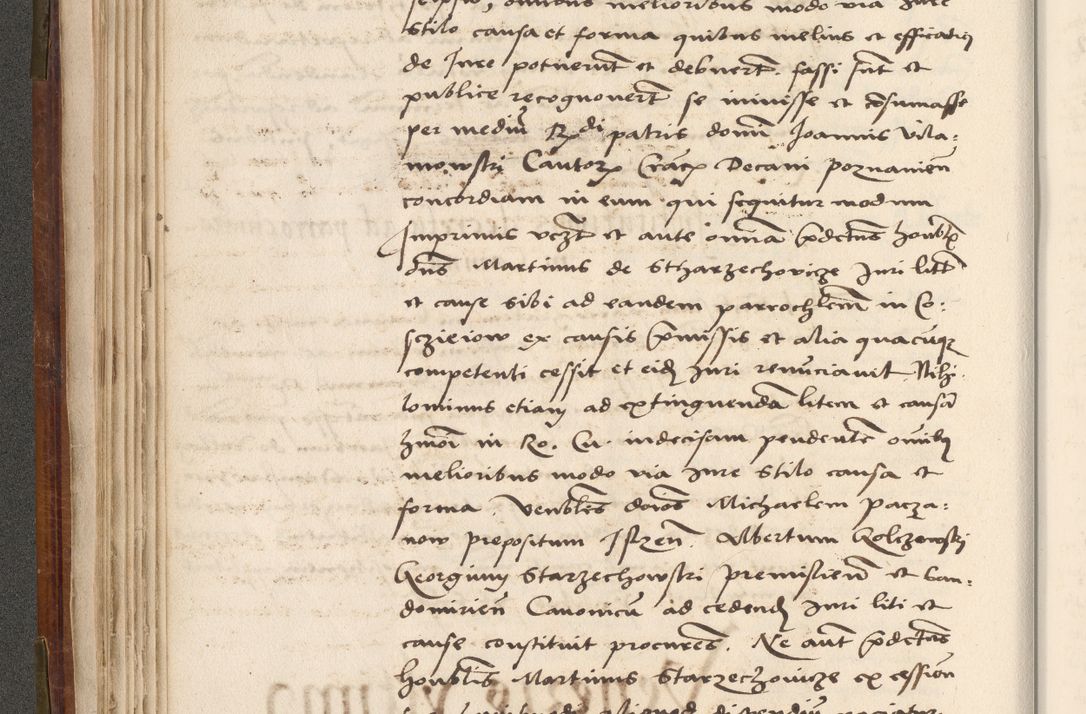 seipsis, omnibus melioribus modo via Jure
stilo causa et forma quibus melius et efficatiꝰ
de Jure potuerūt et debuerūt. fassi sūt et
publice recognoverūt se inivisse et cōsumasse
per mediū Rdi patris domī Joannis Vila:
mowski Cantorꝭ Cracꝭ Decani poznanien̄
concordiam in eum qui sequitur modum
Imprimis vezt et ante omīa p̄dctus honbl
dns Martinus de Stharzechovicze Juri litt
et cause sibi ad eandem parrochlem̄ in Co:
scziejow ex causis p̄missis et alia quacūqꝫ
competenti cessit et eidꝫ Juri renūciavit. Nihi.
lominus etiam ad extinguendā litem et causā
hmōi in Ro. Cu. indecisam pendentē omībꝫ
melioribus modo via Jure stilo causa et
forma Venbles dnos Michaelem Pacza:
now prepositum Albertum Kelczewski
Georgium Starzechowski Premislien̄ et San:
domirien̄ Canonicū ad cedendꝫ Juri liti et
cause constituit procures. Ne aūt p̄dctus
honblis Martinus Starzechovicze ex cession